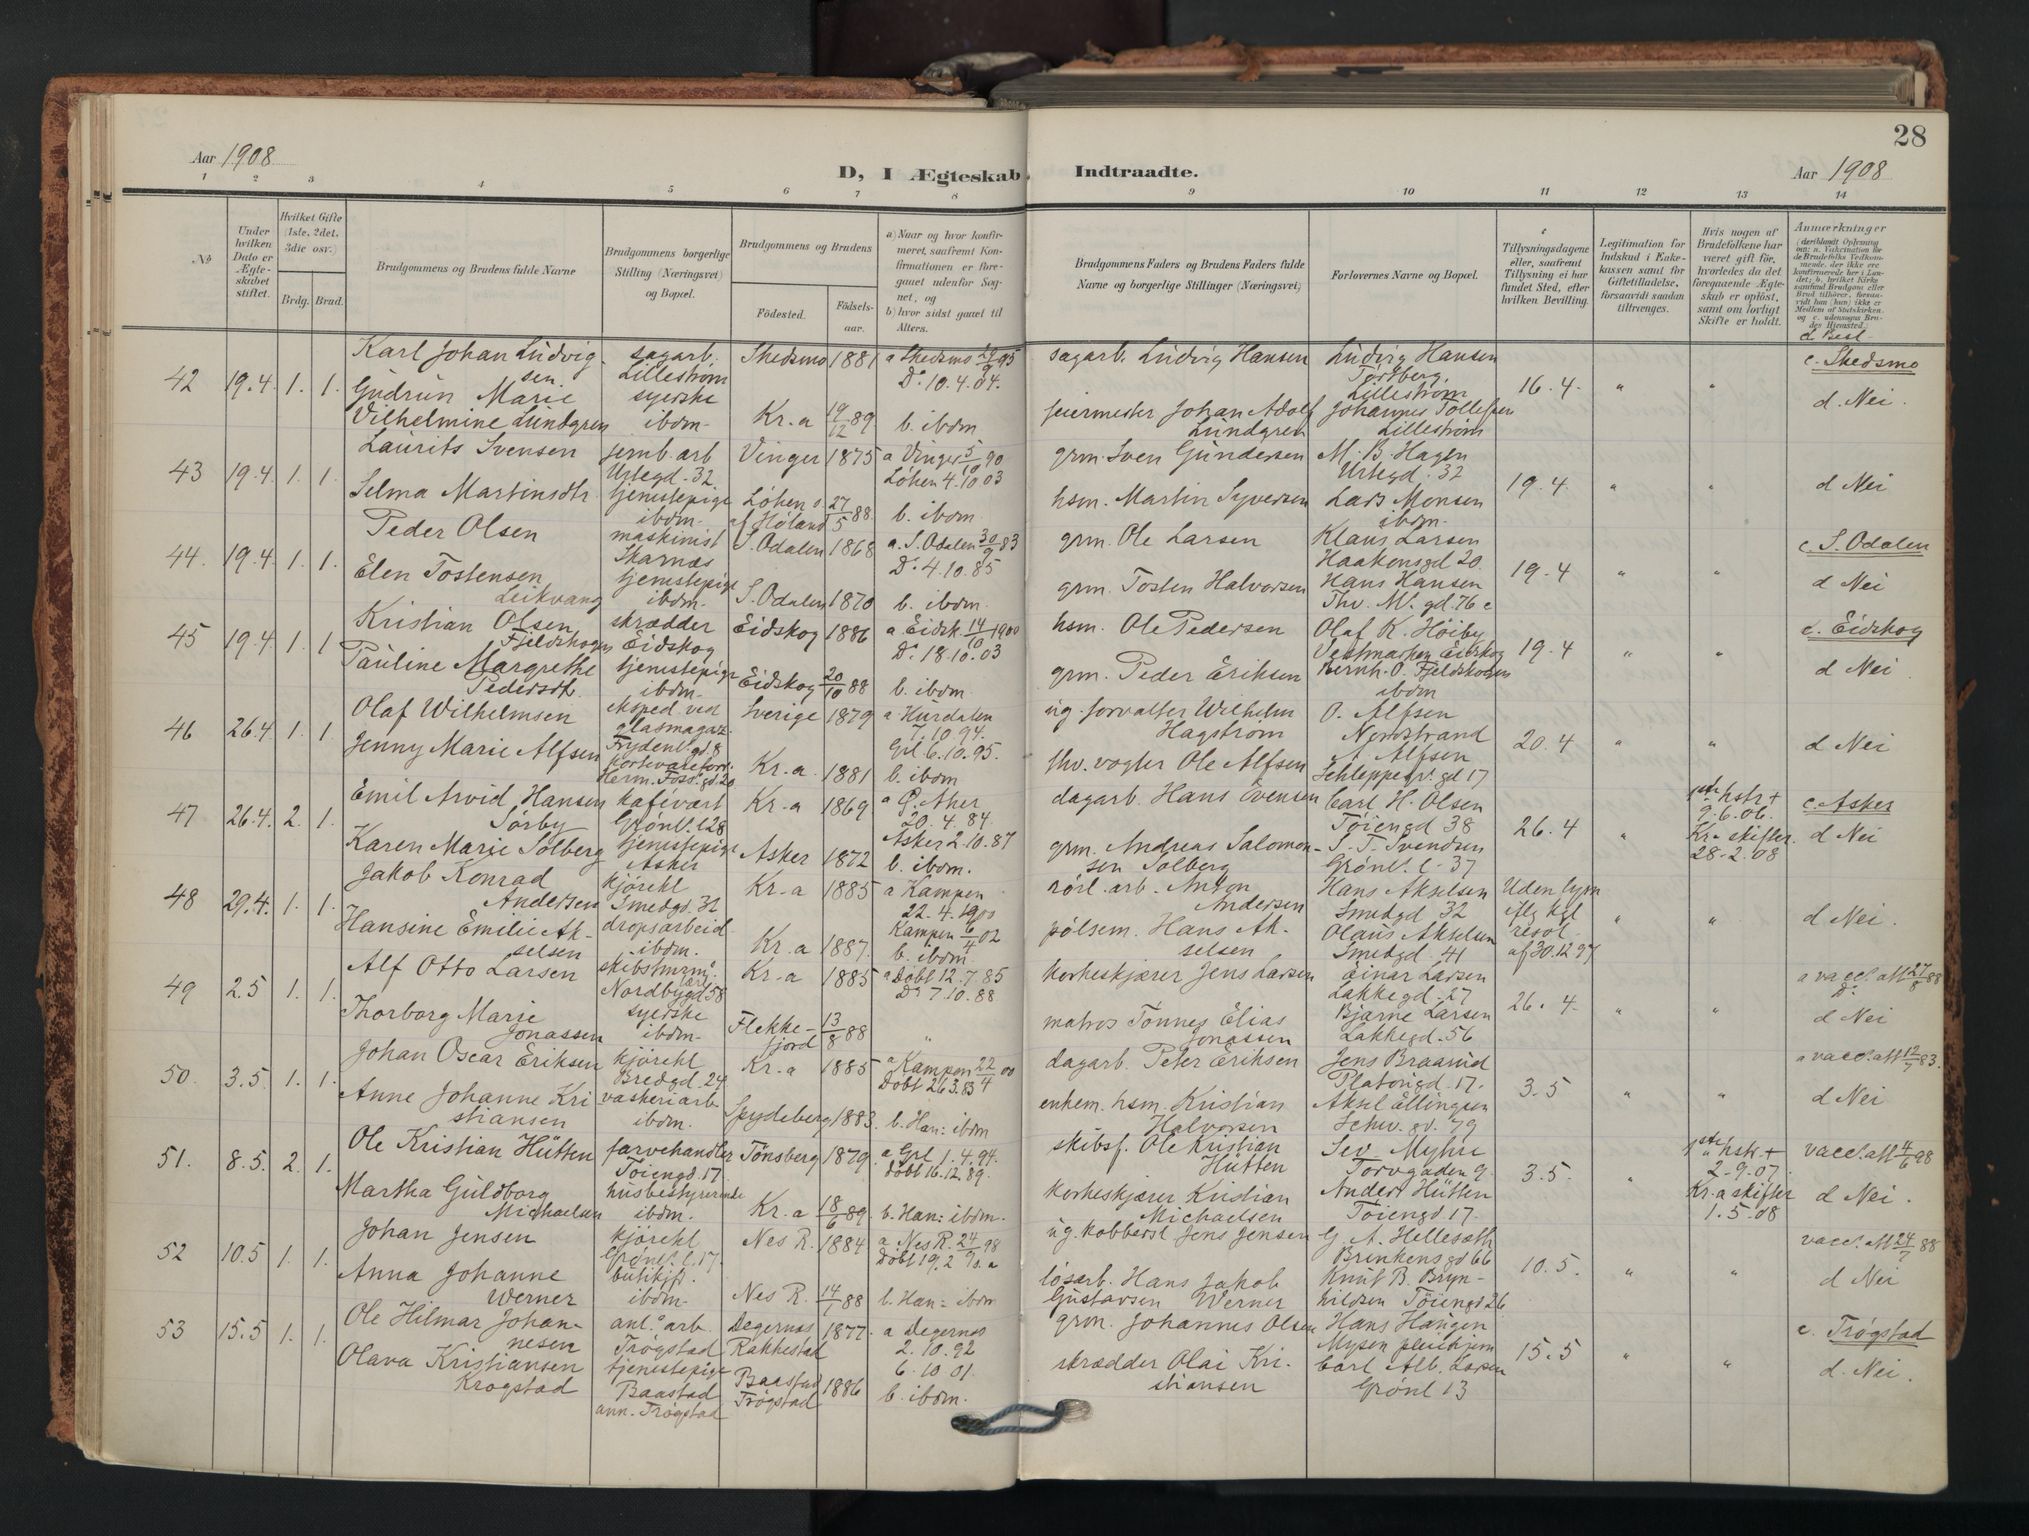 28
Aar 1908
D, I Ægteskab Indtraadte.
Aar 1908
1 2 3 4 5 6 7 8 9 10 11 12 13 14
No
Under hvilken Dato er Ægteskabet stiftet.
Hvilket Gifte (1ste, 2det, 3die osv.)
Brdg. Brud.
Brudgommens og Brudens fulde Navne
Brudgommens borgerlige Stilling (Næringsvei) og Bopæl.
Brudgommens og Brudens
Fødested.
Fødselsaar.
a) Naar og hvor konfirmeret, saafremt Konfirmationen er foregaaet udenfor Sognet, og
b) hvor sidst gaaet til Alters.
Brudgommens Faders og Brudens Faders fulde Navne og borgerlige Stillinger (Næringsvei)
Forlovernes Navne og Bopæl.
Tillysningsdagene eller, saafremt Tillysning ei har fundet Sted, efter hvilken Bevilling.
Legitimation for Indskud i Enkekassen samt for Giftetilladelse, forsaavidt saadan tiltrænges.
Hvis nogen af Brudefolkene har været gift før, hvorledes da det foregaaende Ægteskab er opløst, samt om lovligt Skifte er holdt.
Anmærkninger
42 19.4 1. 1.
Karl Johan Ludvigsen.
sagarb. Lillestrøm
Skedsmo 1881
a Skedsmo 29/9 95
Do. 10.4.04.
sagarb. Ludvig Hansen
Ludvig Hansen
Tørtberg, Lillestrøm
16.4 " "
c. Skedsmo
Gudrun Marie Vilhelmine Lundgren
syerske ibdm.
Kr.a 19/12 89
b. ibdm.
feiermester Johan Adolf Lundgren
Johannes Tollefsen Lillestrøm
d. Nei.
43 19.4 1. 1.
Laurits Svensen
jernb. arb Urtegd. 32.
Vinger 1875
a Vinger 5/10 90
Løken 4.10 03
grm. Sven Gundersen
M. B. Hagen
Urtegd. 32
19.4 " "
Selma Martinsdtr
tjenestepige ibdm.
Løken s. af Høland 27/5 88.
b. ibdm.
hsm. Martin Syversen
Lars Monsen ibdm.
d Nei
44. 19.4. 1. 1.
Peder Olsen
maskinist Skarnæs
S. Odalen 1868
a. S. Odalen 30/9 83
Do. 4.10.85
grm. Ole Larsen
Klaus Larsen
Haakonsgd 20.
19.4 " "
c. S. Odalen
Elen Tostensen Leikvang
tjenestepige ibdm.
S. Odalen 1870
b. ibdm.
grm. Tosten Halvorsen
Hans Hansen
Thv. M. gd. 76 c
d Nei
45 19.4 1. 1
Kristian Olsen Fjeldskogen
skrædder Eidskog
Eidskog 1886
a Eidsk. 14/10 1900
Do. 18.10.03
hsm. Ole Pedersen
Olaf K. Høiby
Vestmarken Eidskog
19.4 " "
c. Eidskog
Pauline Margrethe Pedersdt.
tjenestepige ibdm.
Eidskog 20/10 88
b. ibdm.
grm. Peder Eriksen
Bernh. O. Fjeldskogen ibdm
d Nei
46 26.4 1. 1.
Olaf Wilhelmsen
eksped. ved glasmagaz. Frydenl. gd. 8
Sverige 1879
a Hurdalen
7.10.94.
Grl 6.10.95.
ug. forvalter Wilhelm Hagstrøm
O. Alfsen
Nordstrand
20.4 " "
Jenny Marie Alfsen
Herm. Foss. gd. 20
Kr.a. 1881
b. ibdm
thv. vogter Ole Alfsen
A. Alfsen
Schleppegr. gd 17
d Nei
47 26.4. 2. 1.
Emil Arvid Hansen Sørby
kafévært
Grønl. l. 28
Kr.a 1869.
a G. Aker
20.4.84
Asker 2.10.87
dagarb. Hans Evensen
Carl H. Olsen
Tøiengd 38
26.4 "
1ste hstr +
9.6.06.
Kr.a skifter.
28.2.08
c. Asker
Karen Marie Solberg
tjenestepige Asker
Asker 1872
b. ibdm.
grm. Andreas Salomonsen Solberg
T. T. Svendsen
Grønl. l. 37
d Nei
48 29.4. 1. 1.
Jakob Konrad Andersen
kjørekl Smedgd. 32
Kr.a 1885
a Kampen
22.4.1900
Kampen 6/4 02
rørl. arb. Anton Andersen
Hans Akselsen
Smedgd 32
Uden lysn iflg kgl resol. af 30.12 97
" "
Hansine Emilie Akselsen
dropsarbeid ibdm.
Kr.a 1887.
b. ibdm.
pølsem. Hans Akselsen
Olaus Akselsen
Smedgd. 41
d Nei.
49 2.5 1. 1.
Alf Otto Larsen
Nordbygd 58
Kr.a 1885
a Døbt 12.7.85
Do 7.10.88
korkeskjærer Jens Larsen
Einar Larsen
Lakkegd. 27
26.4. " "
a vacc. att 27/8 88
Thorborg Marie Jonassen
syerske ibdm.
Flekkefjord 13/8 88
"
matros Tønnes Elias Jonassen
Bjarne Larsen
Lakkegd. 56
d Nei
50. 3.5. 1. 1.
Johan Oscar Eriksen
kjørekl Bredgd. 24
Kr.a 1885
a Kampen 22/4 00
Døbt 26 3.83
dagarb. Peter Eriksen
Jens Braarud
Platougd. 17.
3.5 " "
a vacc. att 12/7 83.
Anne Johanne Kristiansen
vaskeriarb ibdm.
Spydeberg 1883.
b. Han: ibdm
enkem. hsm. Kristian Halvorsen
Aksel Ellingsen
Schw. gd. 79
d Nei
51. 8.5. 2. 1.
Ole Kristian Hütten
farvehandler Tøiengd. 17
Tønsberg 1879
a Grl 1.4.94.
Døbt 16.12.89.
skibsf. Ole Kristian Hütten
Sev Myhre
Torvgaden 9.
3.5. "
1ste hstr. +
2.9.07.
Kr.a skifter
1.5.08
vacc. att 4/6 98
Martha Guldborg Michaelsen
husbestyrerinde ibdm.
Kr.a 18/6 89.
b. Han: ibdm.
korkeskjærer Kristian Michaelsen
Anders Hütten
Tøiengd 17.
d Nei.
52 10.5 1. 1.
Johan Jensen
kjørekl Grønl. l. 17.
Nes R. 1884
a Nes R. 24/4 98
ug. kobbersl Jens Jensen
G. A. Hellesæth
Brinkensgd 66
10.5. " "
vacc. att 24/7 88
Anna Johanne Werner
butikjfr. ibdm.
Nes R. 14/1 88
b. Han: ibdm
løsarb. Hans Jakob Gustavsen Werner
Knut B. Brynhildsen Tøiengd 26
d Nei
53 15.5 1. 1.
Ole Hilmar Johannesen
anl. arb. Trøgstad
Degernes Rakkestad 1877.
a Degernes
2.10.92
6.10 01.
grm. Johannes Olsen
Hans Haugen
Mysen pleiehjem
15.5 " "
c. Trøgstad
Olava Kristiansen Krogstad
tjenestepige Baastad ann. Trøgstad
Baastad Trøgstad 1886
b. ibdm.
skrædder Olai Kristiansen
Carl Alb. Larsen
Grønl 13
d. Nei.